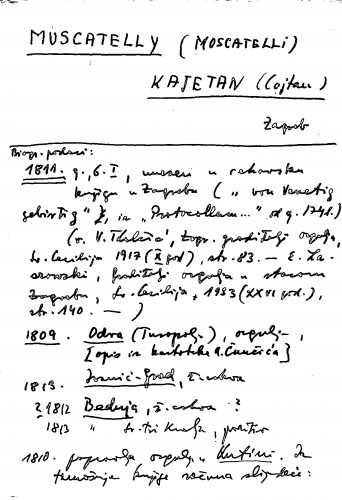 MUSCATELLY (MOSCATELLI)
KAJETAN (Cajtan)
Zagreb
Biogr. podaci:
1811. g., 6. I, unesen u cehovsku
knjigu u Zagrebu („von Venetig
gebürtig", iz „Protocollum..." od g. 1741.)
(v. V. , Zagr. graditelji orgulja,
Sv. Cecilija 1917 (X god), str. 83. — E. La-
szowski, Graditelji orgulja u starom
Zagrebu, Sv. Cecilija, 1933 (XXVI god.),
str. 140. — )
1809. Odra (Turopolj.), orgulj-,
[opis iz kartoteke Čunčića]
1813. Ivanić-Grad, ž. crkva
? 1812 Bednja, ž. crkva ?
1813 " sv. tri Kralja,
1810. popravlja orgulje u Kutini. Iz
knjige računa slijedeće: